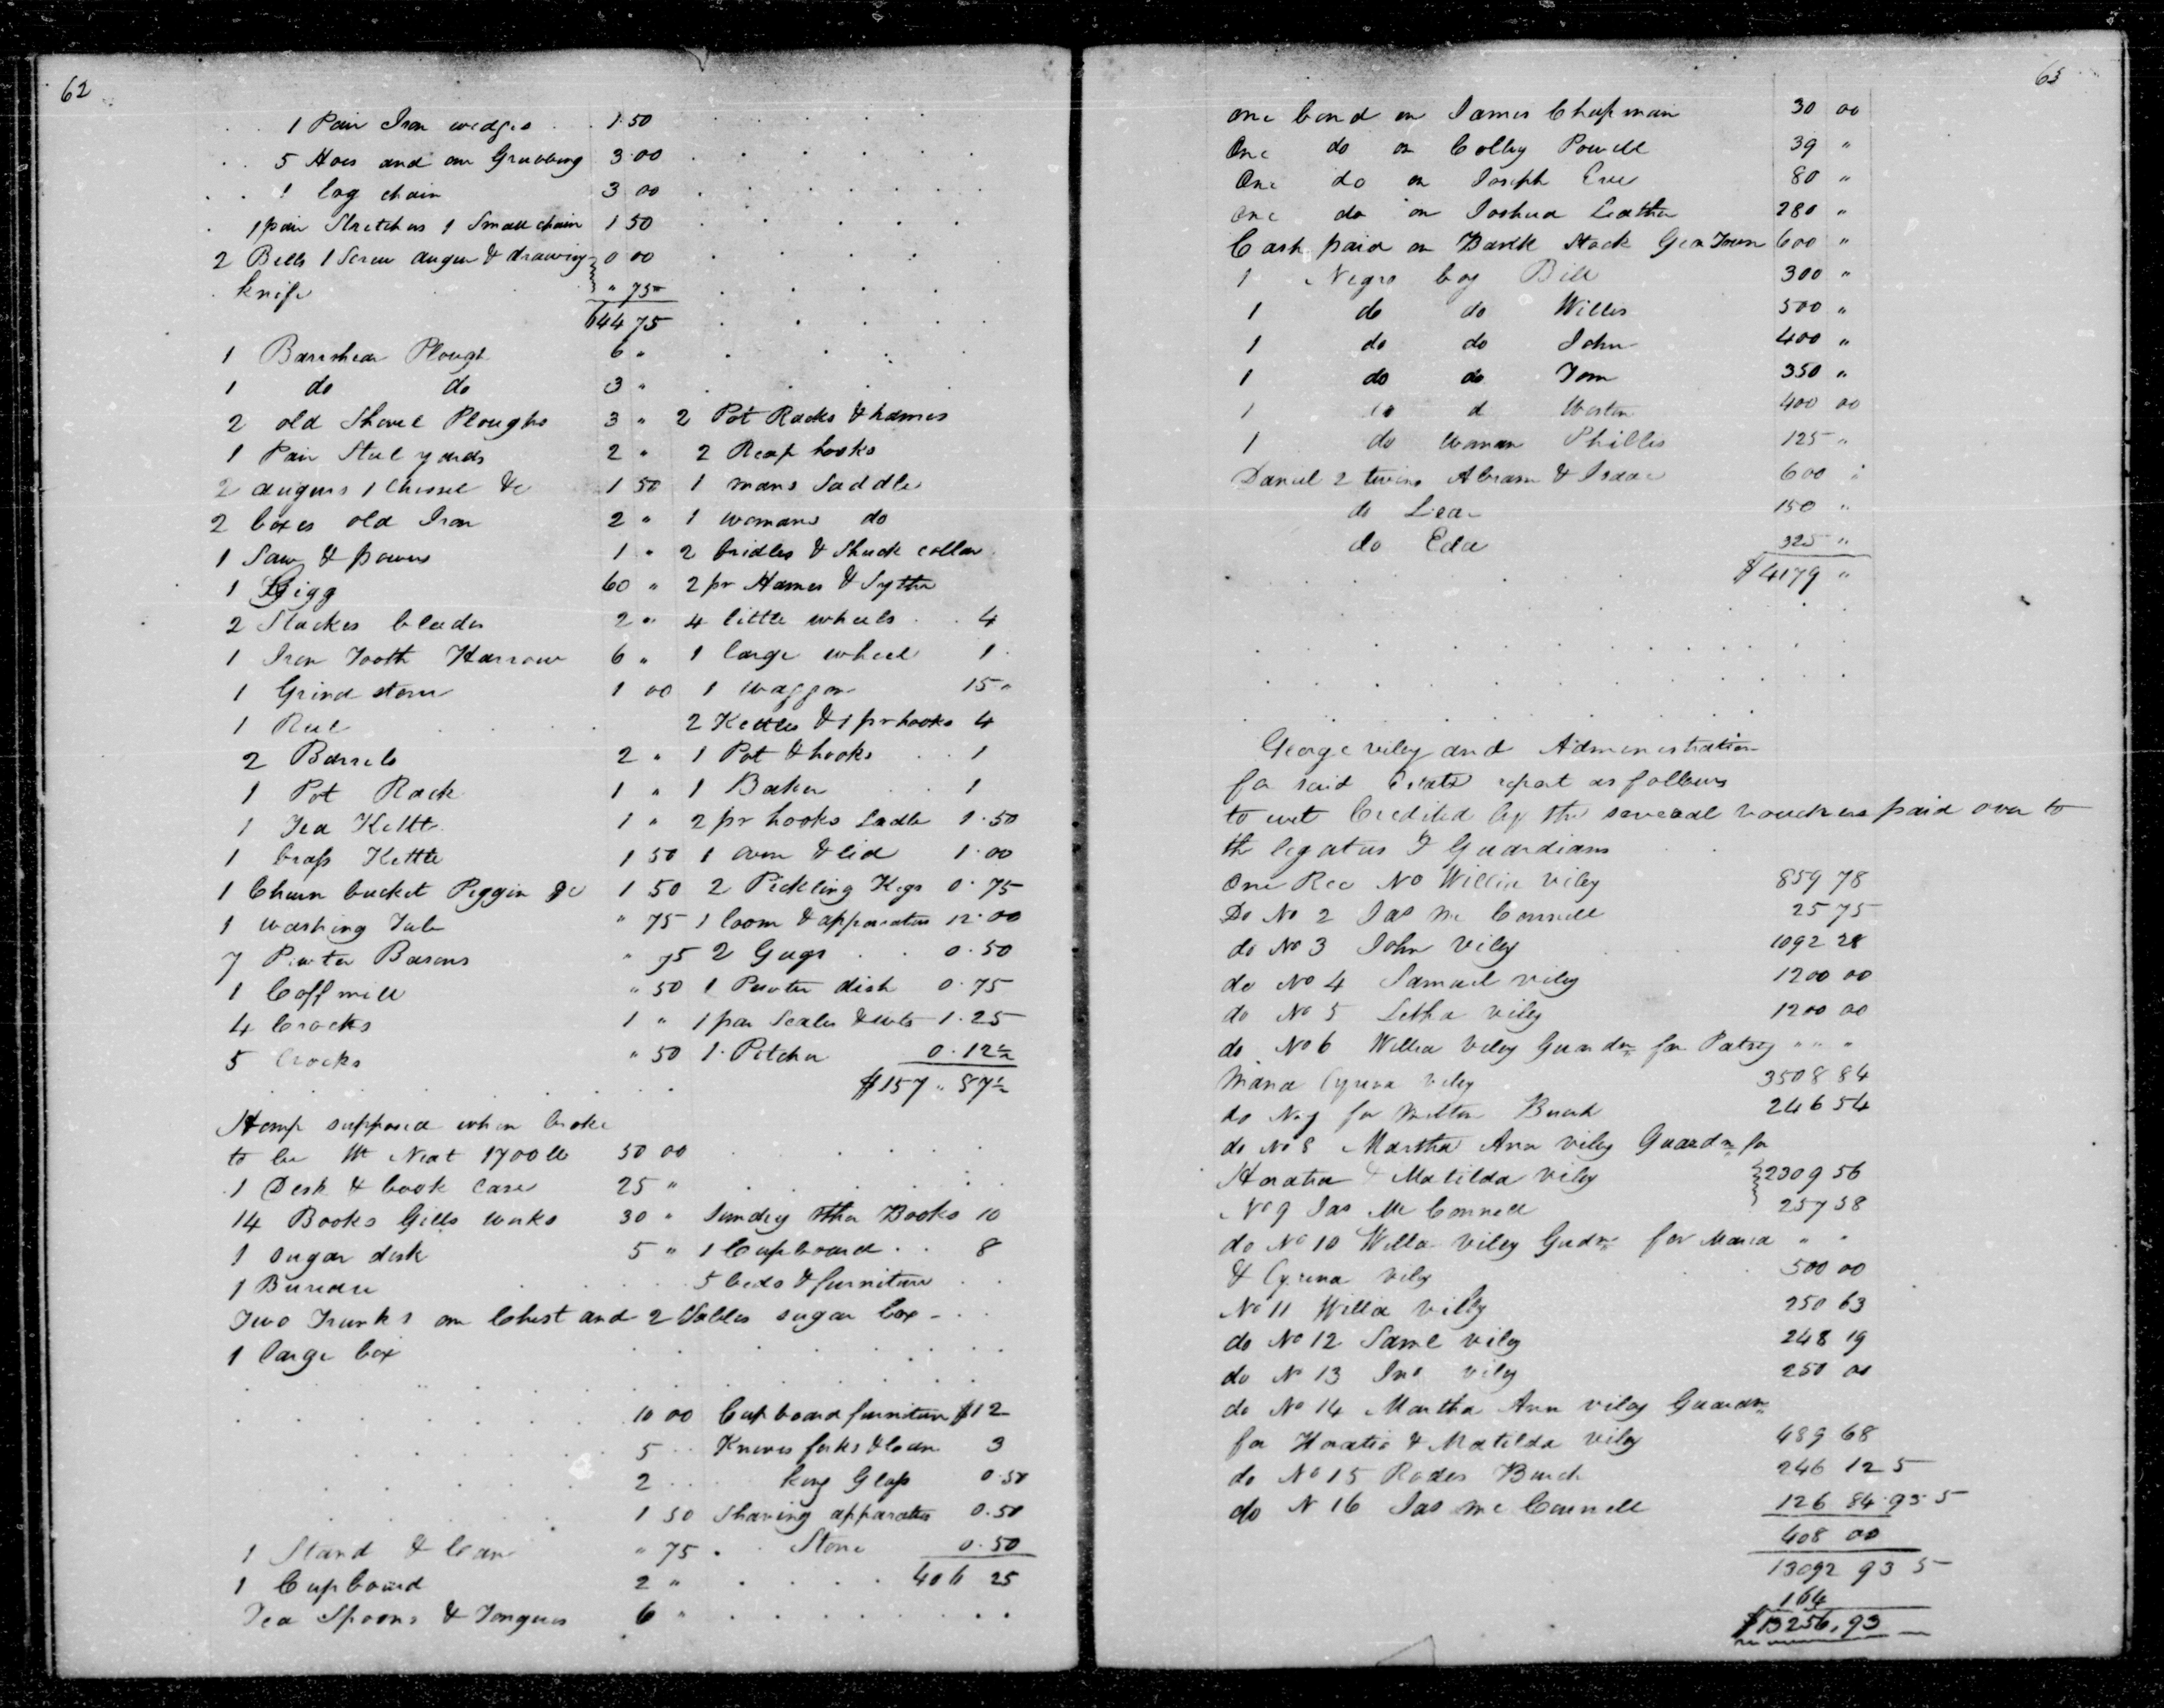 62
1 Pair Iron wedges 1.50
5 Hoes and one Grubbing 3.00
1 log chain 3 00
1 pair Stretchers 1 Small chain 1 50
2 Bells 1 Screw auger & drawing 0 00
knife " 75
644 75
1 Barrshear Plough 6 "
1 do do 3 "
2 old Shovel Ploughs 3 " 2 Pot Racks & hames
1 Pair Steel yards 2 " 2 Reap hooks
2 augurs 1 Chissel &c 1 50 1 mans Saddle
2 boxes old Iron 2 " 1 womans do
1 Saw & 1 " 2 bridles & Shuck collar
1 Gigg 60 " 2 pr Hames & Sythe
2 2 " 4 little wheels 4
1 Iron Tooth Harrow 6 " 1 large wheel 1
1 Grind stone 1 00 1 waggon 15 "
1 Reel 2 Kettles & 1 pr hooks 4
2 Barrels 2 " 1 Pot & hooks 1
1 Pot Rack 1 " 1 Baker 1
1 Tea Kettle 1 " 2 pr hooks Ladle 1.50
1 brass Kettle 1 50 1 oven & lid 1.00
1 Churn bucket Piggin &c 1 50 2 Pickling Kegs 0.75
1 washing Tub " 75 1 loom & apparatus 12.00
7 Pewter Basons " 75 2 Gugs 0.50
1 Coff mill " 50 1 Pewter dish 0.75
4 Crocks 1 " 1 par Scales & wts 1.25
5 Crocks " 50 1 Pitcher 0.12½
$157 " 87½
Hemp supposed when broke
to be Wt Neat 1700 lb 50 00
1 Desk & book case 25 "
14 Books Gills works 30 " Sundry other Books 10
1 sugar desk 5 " 1 Cupboard 8
1 Bureau 5 beds & furniture
Two Trunks one Chest and 2 Tables sugar box
1 large box
10 00 Cupboard furniture $12
5 Knives forks & 3
2 king Glass 0.50
1 50 Shaving apparatus 0.50
1 Stand & " 75 Stone 0.50
1 Cupboard 2 " 406 25
Tea Spoons & Tongues 6 "
63
one bond on James Chapman 30 00
One do on Colby Powell 39 "
One do on Joseph Eve 80 "
One do on Joshua Leather 280 "
Cash paid on Bank Stock Geo Town 600 "
1 Negro boy Bill 300 "
1 do do Willis 500 "
1 do do John 400 "
1 do do Tom 350 "
1 do d 400 00
1 do woman Phillis 125 "
Daniel 2 twins Abram & Isaac 600 "
do 150 "
do Eda 325 "
$4179 "
George viley and Administration
for said Estate report as follows
to wit Credited by the several vouchers paid over to
th legatees & Guardians
One Rec No Willia viley 859 78
Do No 2 Jas Mc Connell 25 75
do No 3 John viley 1092 28
do No 4 Samuel viley 1200 00
do No 5 Letha viley 1200 00
do No 6 Willia viley Guardn for Patsy " " "
Maria Cyrena viley 3508 84
do No 7 for Milton Burch 246 54
do No 8 Martha Ann viley Guardn for
Horatia & Matilda viley 2309 56
No 9 Jas Mc Connell 257 58
do No 10 Willa viley Gudn for Maria " "
& Cyrena viley 500 00
No 11 Willia viley 250 63
do No 12 Saml viley 248 19
do No 13 Jno viley 250 00
do No 14 Martha Ann viley Guardn
for Horatio & Matilda viley 489 68
do No 15 Rodes Burch 246 12 5
do N 16 Jas Mc Connell 126 84.93 5
408 00
13092 93 5
164
$13256.93